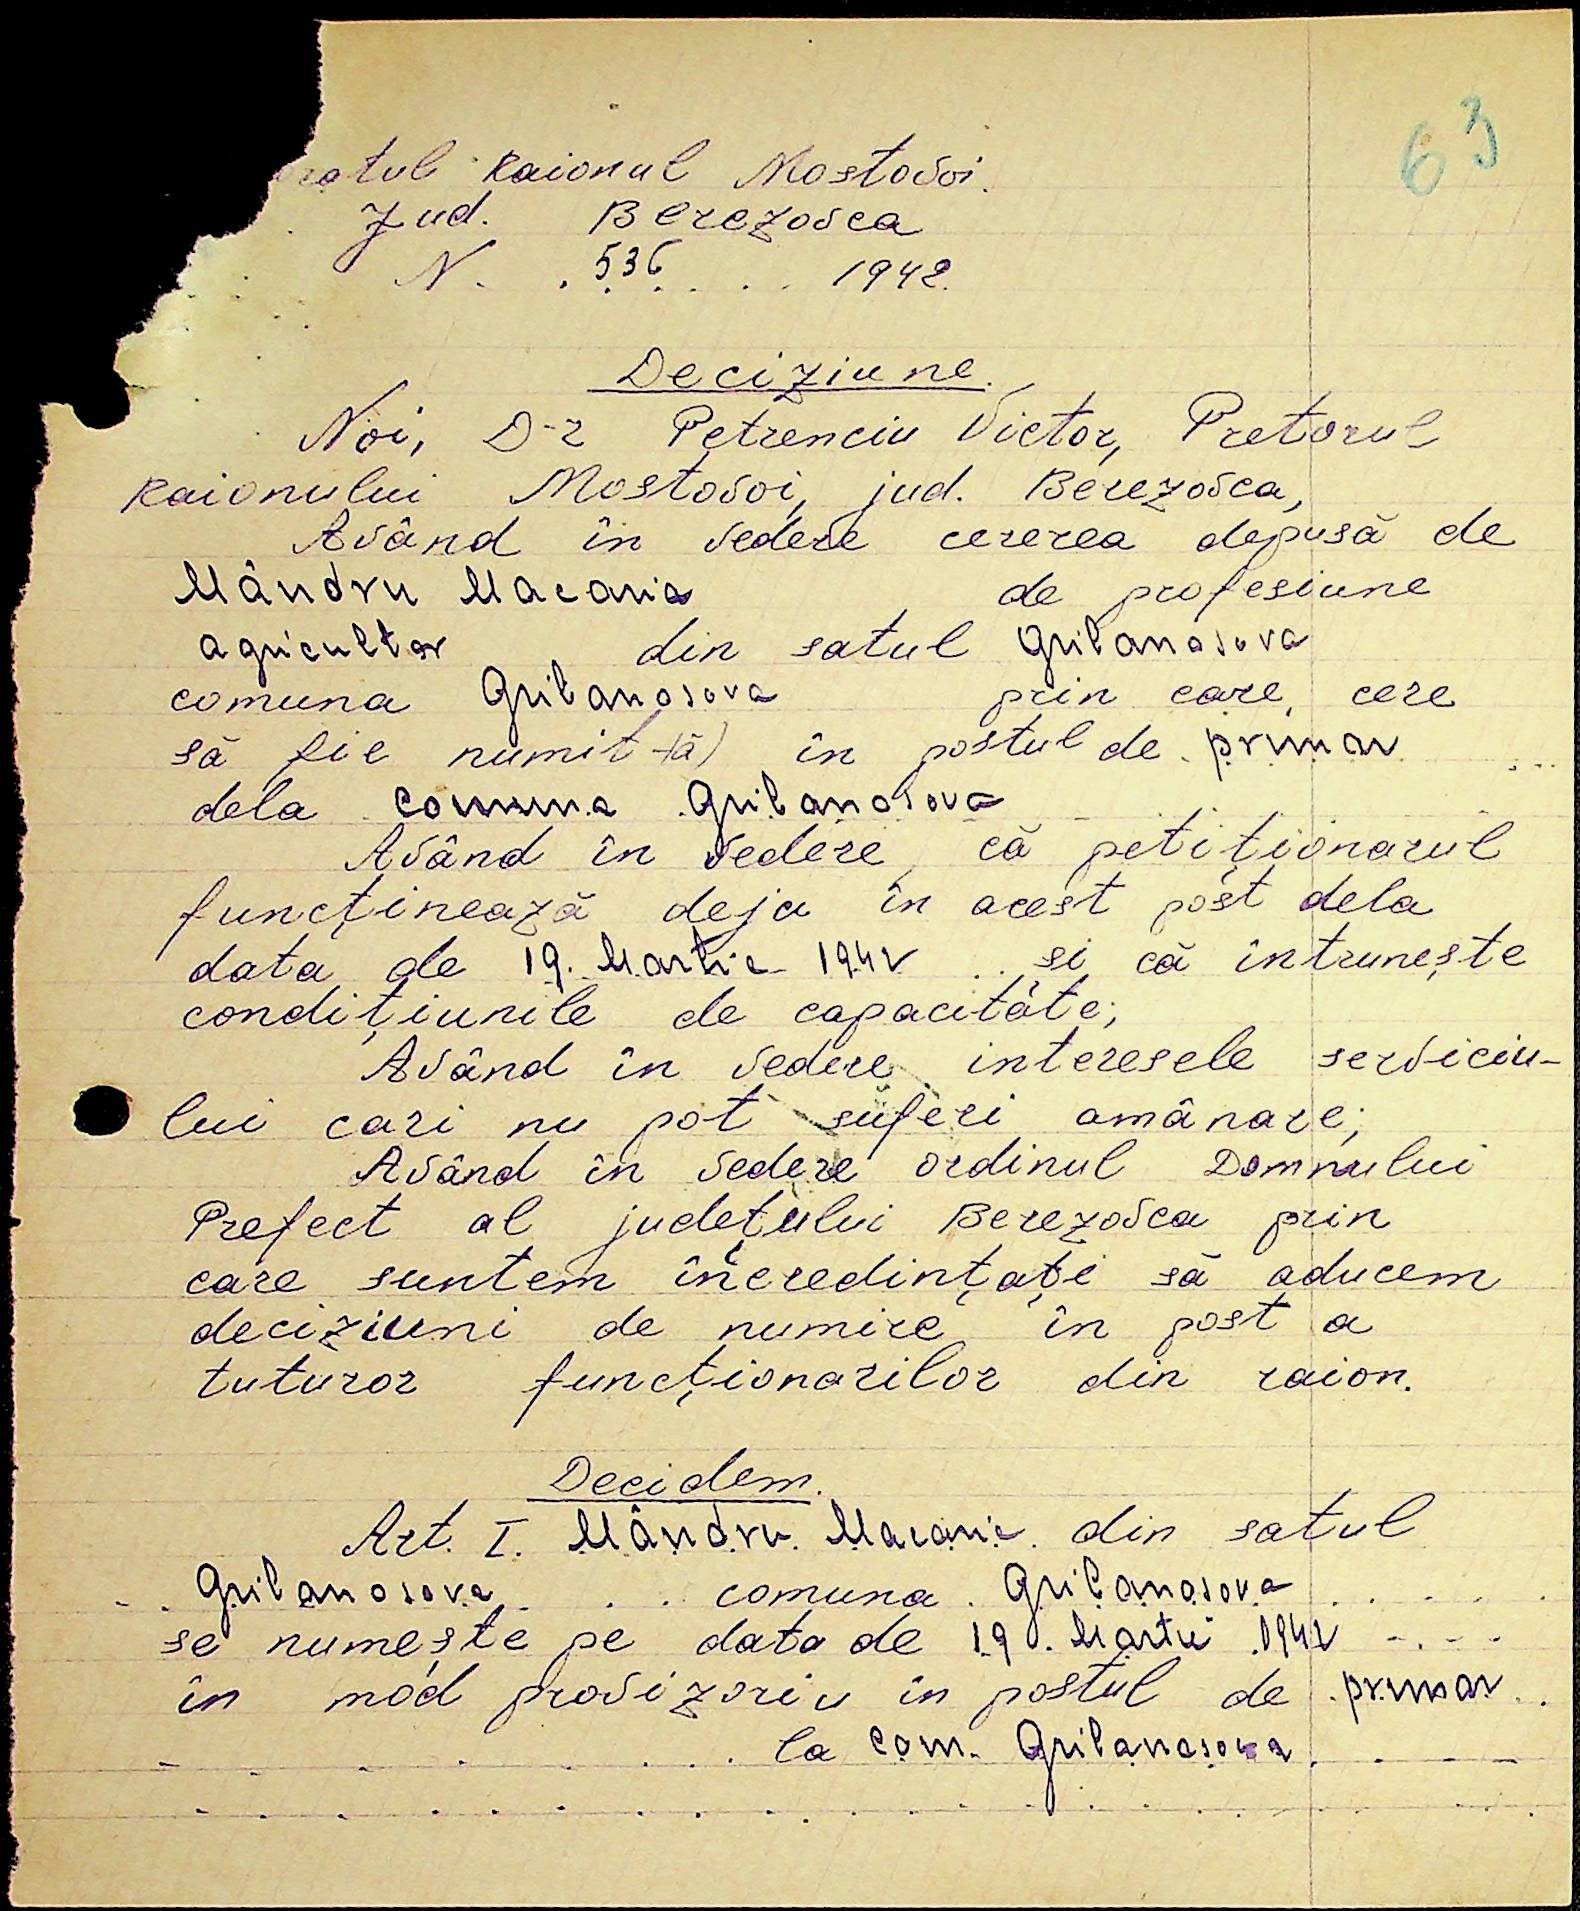 63
ratul Raionul Mostovoi.
Jud. Berezovca
N. . 536 . . . 1942.
Deciziune.
Noi, D-r Petrenciu Victor, Pretorul
Raionului Mostovoi, jud. Berezovca,
Având în vedere cererea depusă de
Mândru Macarie de profesiune
agricultor din satul Gribanosova
comuna Gribanosova prin care, cere
să fie numit (ă) în postul de primar
dela comuna Gribanosova
Având în vedere, că petiționarul
funcținează deja în acest post dela
data de 19. Martie 1942 .. și că întrunește
condițiunile de capacitate;
Având în vedere interesele serviciu-
lui cari nu pot suferi amânare;
Având în vedere ordinul Domnului
Prefect al județului Berezovca prin
care suntem încredințați să aducem
deciziuni de numire în post a
tuturor funcționarilor din raion.
Decidem.
Art. I. Mândru Macarie din satul
Gribanosova comuna Gribanosova
se numește pe data de 19. Martie 1942
în mod provizoriu în postul de primar
la com. Gribanosova